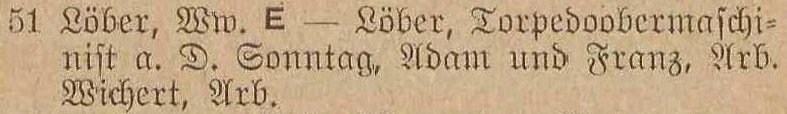 51 Löber, Ww. E — Löber, Torpedoobermaſchi⸗
niſt a. D. Sonntag, Adam und Franz, Arb.
Wichert, Arb.